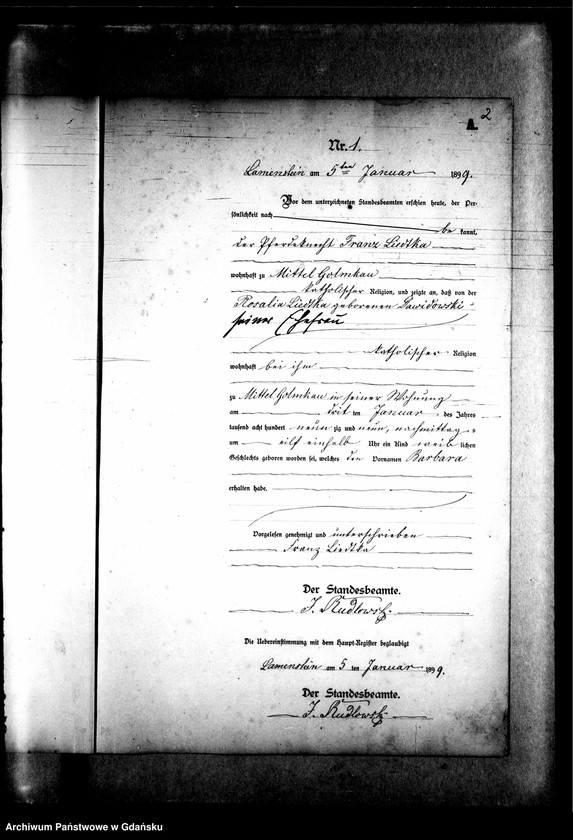 A. 2
Nr. 1.
Lamenstein am 5ten Januar 1899.
Vor dem unterzeichneten Standesbeamten erschien heute, der Per-
sönlichkeit nach
be kannt,
der Pferdeknecht Franz Liedtka
wohnhaft zu Mittel Golmkau
katholischer Religion, und zeigte an, daß von der
Rosalia Liedtka geborenen Dawidowski
seiner Ehefrau
katholischer Religion
wohnhaft bei ihm
zu Mittel Golmkau in seiner Wohnung
am drit ten Januar des Jahres
tausend acht hundert neun zig und neun, nachmittag s
um eilf einhalb Uhr ein Kind weib lichen
Geschlechts geboren worden sei, welches den Vornamen Barbara
erhalten habe.
Vorgelesen genehmigt und unterschrieben
Franz Liedtka
Der Standesbeamte.
J. Rudlowski
Die Uebereinstimmung mit dem Haupt-Register beglaubigt
Lamenstein am 5 ten Januar 1899.
Der Standesbeamte.
J. Rudlowski
Archiwum Państwowe w Gdańsku